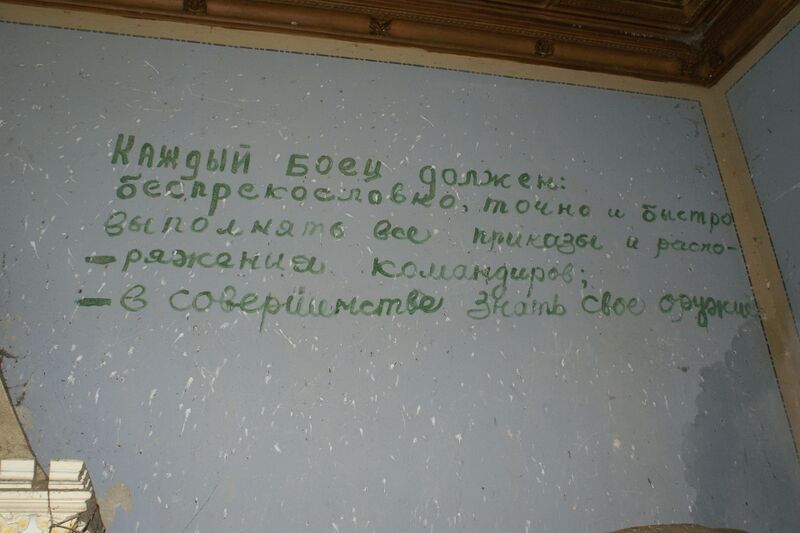 Каждый боец должен:
беспрекословно, точно и быстро
выполнять все приказы и распо-
- ряжения командиров;
- в совершинстве знать свое оружие